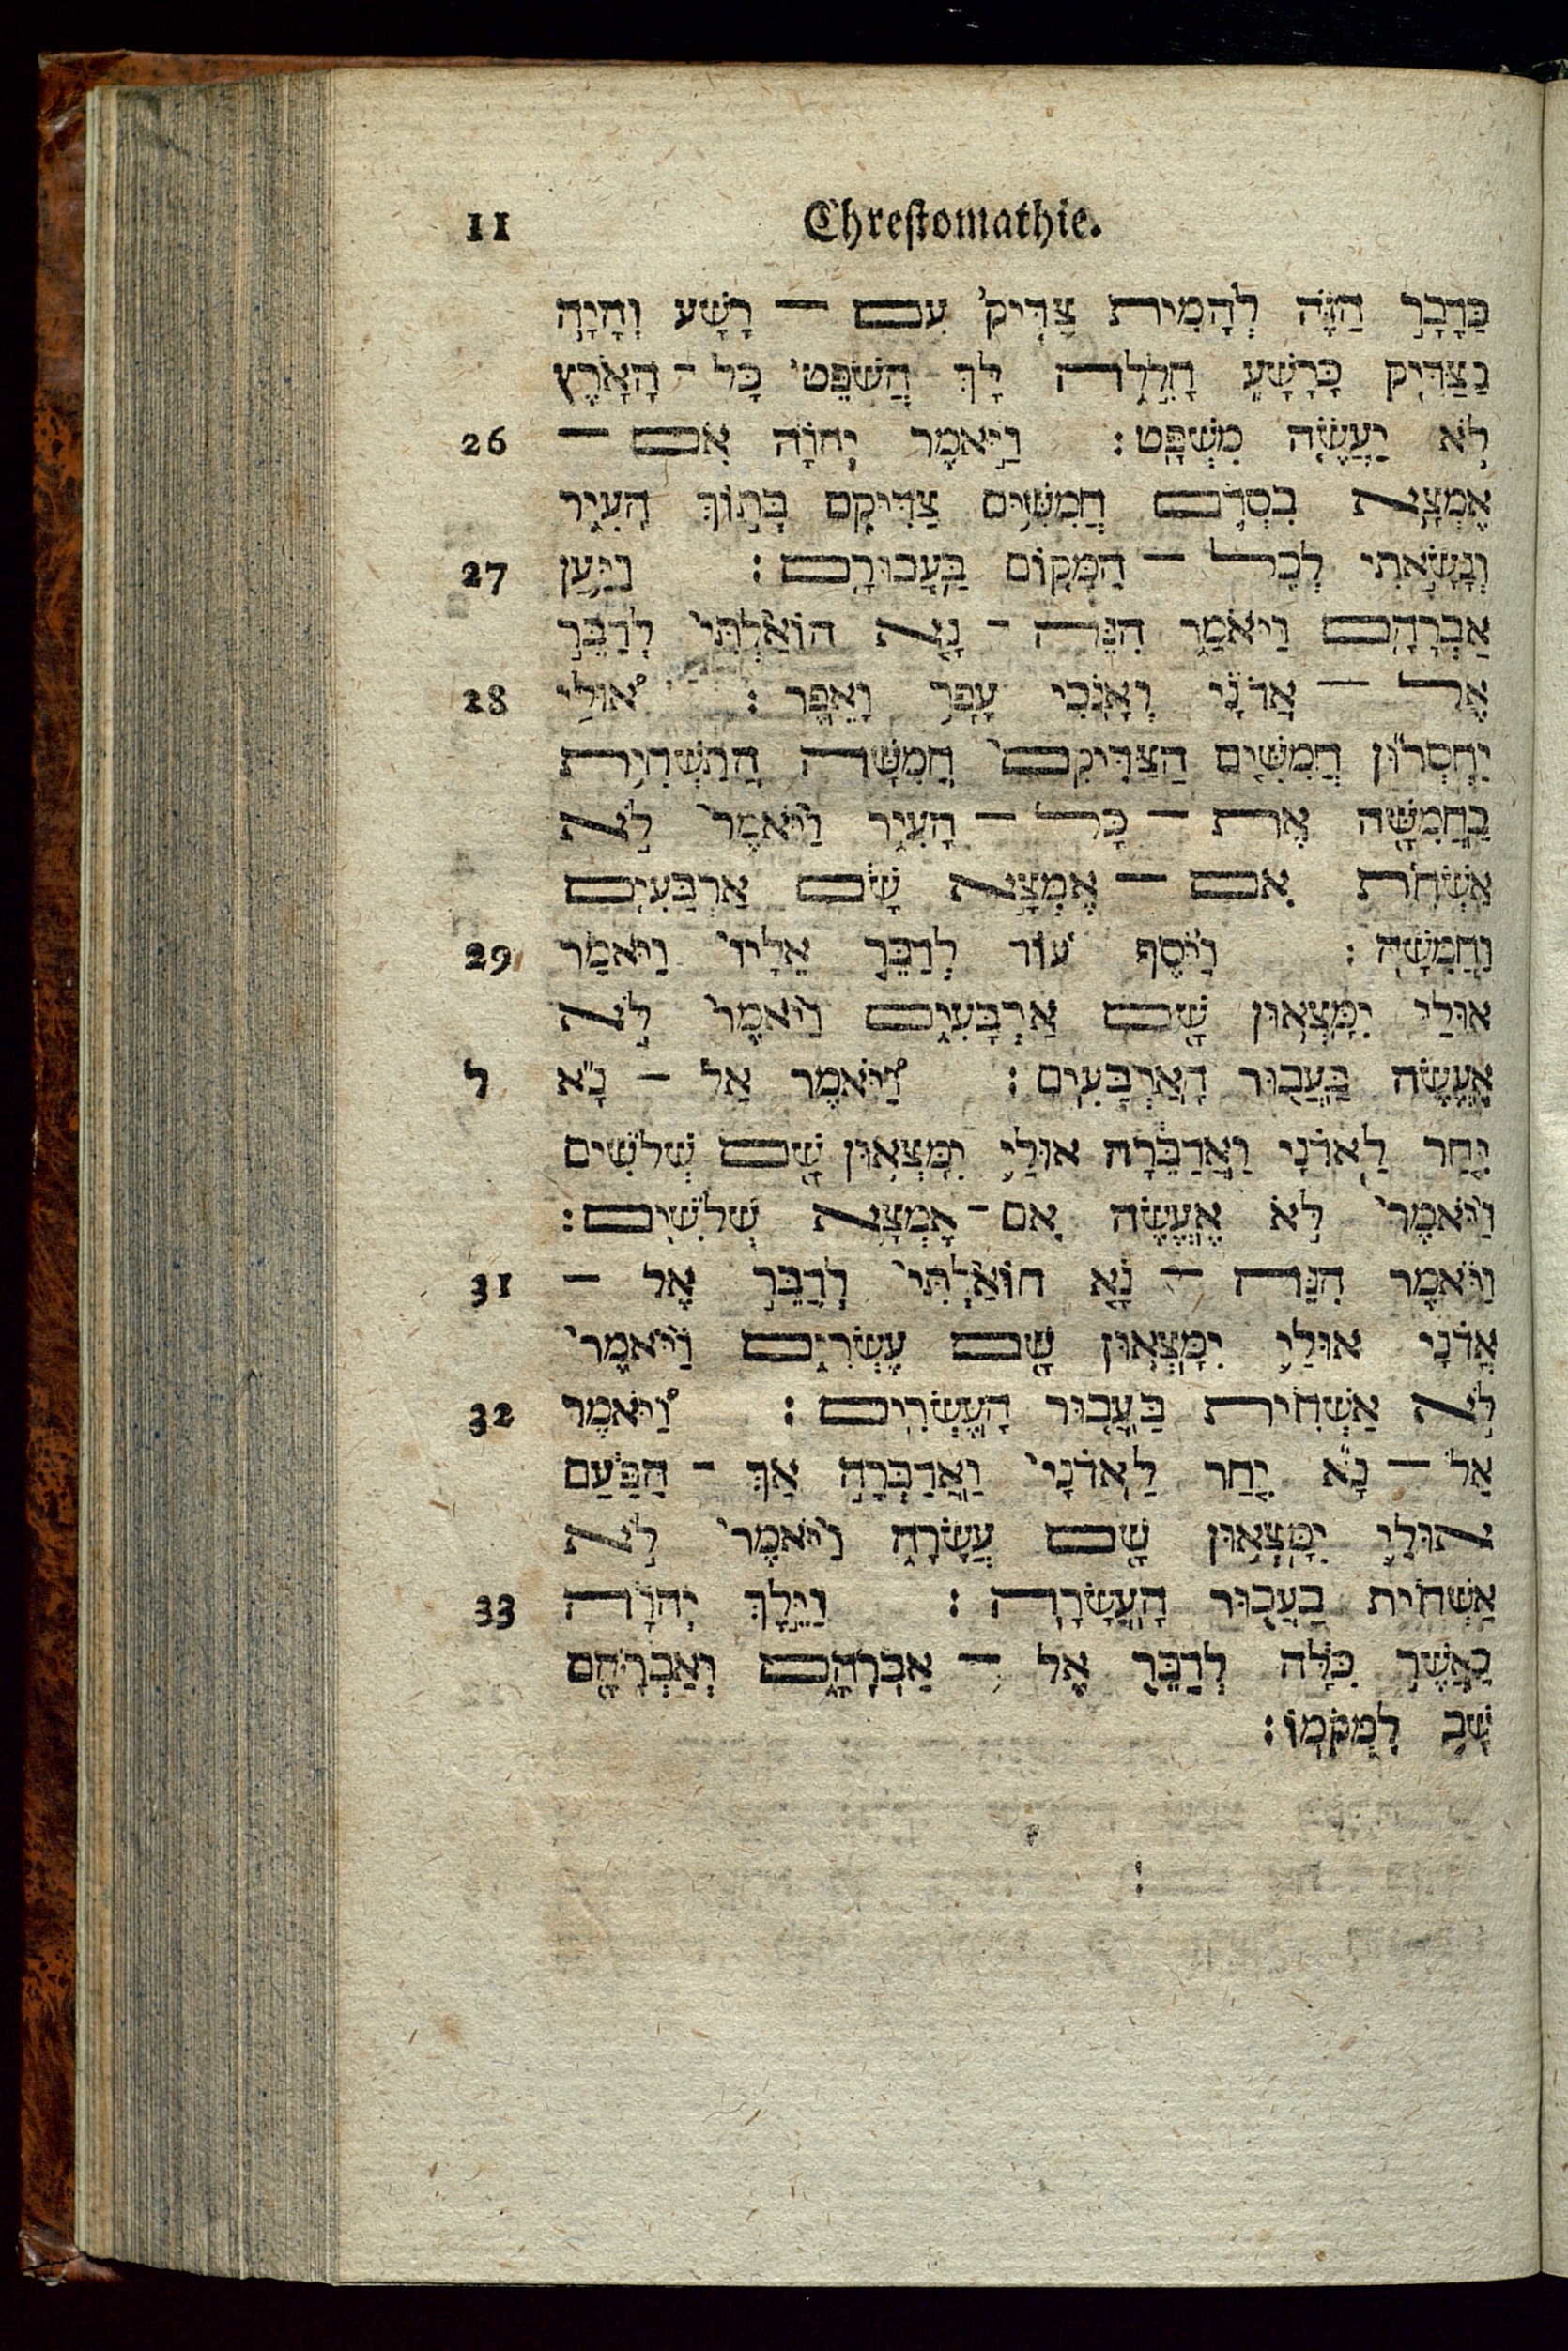 11 Chrestomathie.
כַּדָּבָר הַזֶּה לְהָמִית צַדִּיק עִם — רָשָׁע וְהָיָה
כַצַּדִּיק כָּרָשָׁע חָלִלָה לָּךְ הֲשֹׁפֵט כָּל־הָאָרֶץ
26 לֹא יַעֲשֶׂה מִשְׁפָּט׃ וַיֹּאמֶר יְהוָֹה אִם —
אֶמְצָא בִסְדֹם חֲמִשִּׁים צַדִּיקִם בְּתוֹךְ הָעִיר
27 וְנָשָׂאתִי לְכָל — הַמָּקוֹם בַּעֲבוּרָם׃ וַיַּעַן
אַבְרָהָם וַיֹּאמַר הִנֵּה־נָא הוֹאַלְתִּי לְדַבֵּר
28 אֶל — אֲדֹנָי וְאָנֹכִי עָפָר וָאֵפֶר׃ °אוּלַי
יַחְסְרוּן חֲמִשִּׁים הַצַּדִּיקִם חֲמִשָּׁה הֲתַשְׁחִית
בַּחֲמִשָּׁה אֶת — כָּל — הָעִיר וַיֹּאמֶר לֹא
אַשְׁחִת אִם — אֶמְצָא שָׁם אַרְבָּעִים
29 וַחֲמִשָּׁה׃ וַיֹּסֶף עוֹד לְדַבֵּר אֵלָיו וַיֹּאמַר
אוּלַי יִמָּצְאוּן שָׁם אַרְבָּעִים וַיֹּאמֶר לֹא
ל אֶעֱשֶׂה בַּעֲבוּר הָאַרְבָּעִים׃ °וַיֹּאמֶר אַל — נָא
יִחַר לַאדֹנָי וַאֲדַבֵּרָה אוּלַי יִמָּצְאוּן שָׁם שְׁלֹשִׁים
וַיֹּאמֶר לֹא אֶעֱשֶׂה אִם־אֶמְצָא שְׁלֹשִׁים׃
31 וַיֹּאמֶר הִנֵּה — נָא הוֹאַלְתִּי לְדַבֵּר אֶל —
אֲדֹנָי אוּלַי יִמָּצְאוּן שָׁם עֶשְׂרִים וַיֹּאמֶר
32 לֹא אַשְׁחִית בַּעֲבוּר הָעֶשְׂרִים׃ °וַיֹּאמֶר
אַל — נָא יִחַר לַאדֹנָי וַאֲדַבְּרָה אַךְ־הַפַּעַם
אוּלַי יִמָּצְאוּן שָׁם עֲשָׂרָה וַיֹּאמֶר לֹא
33 אַשְׁחִית בַּעֲבוּר הָעֲשָׂרָה׃ וַיֵּלֶךְ יְהוָֹה
כַּאֲשֶׁר כִּלָּה לְדַבֵּר אֶל — אַבְרָהָם וְאַבְרָהָם
שָׁב לִמְקֹמוֹ׃